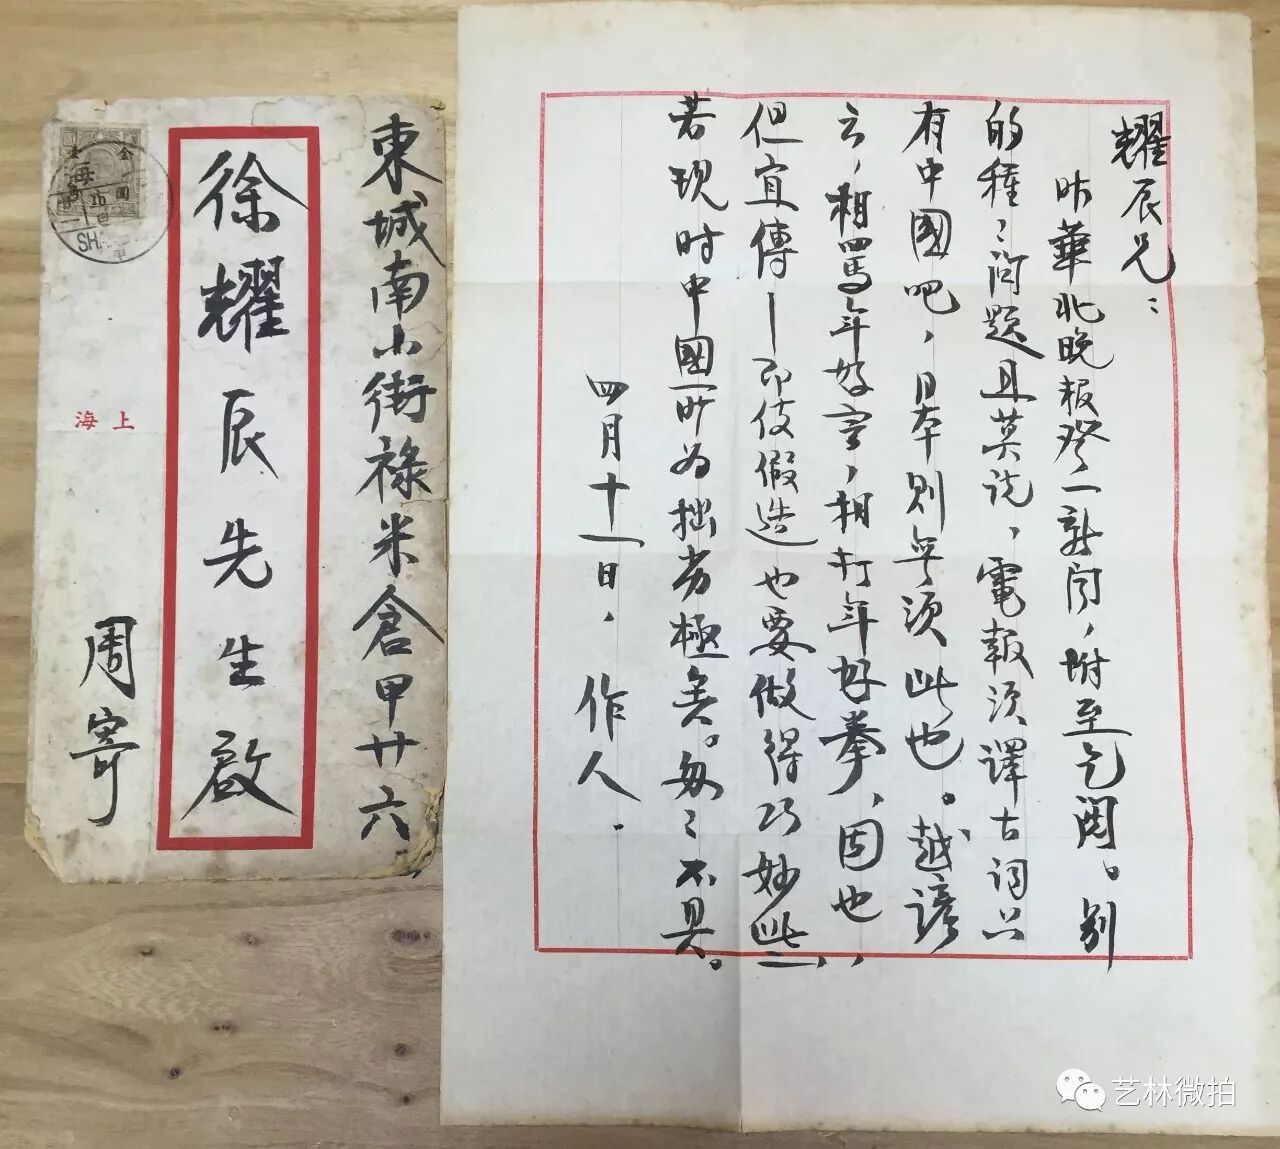 東城南小街祿米倉甲廿六
徐耀辰先生啟
上海
周寄
耀辰兄：
昨華北晚報登一新聞，附至乞閱。別
的種〻問題且莫說，電報須譯古詞只
有中國吧，日本則無須此也。越諺
云，相罵無好言，相打無好拳，固也，
但宣傳—即使假造也要做得巧妙些，
若現时中國所为拙劣極矣。匆〻不具。
四月十一日，作人．
艺林微拍